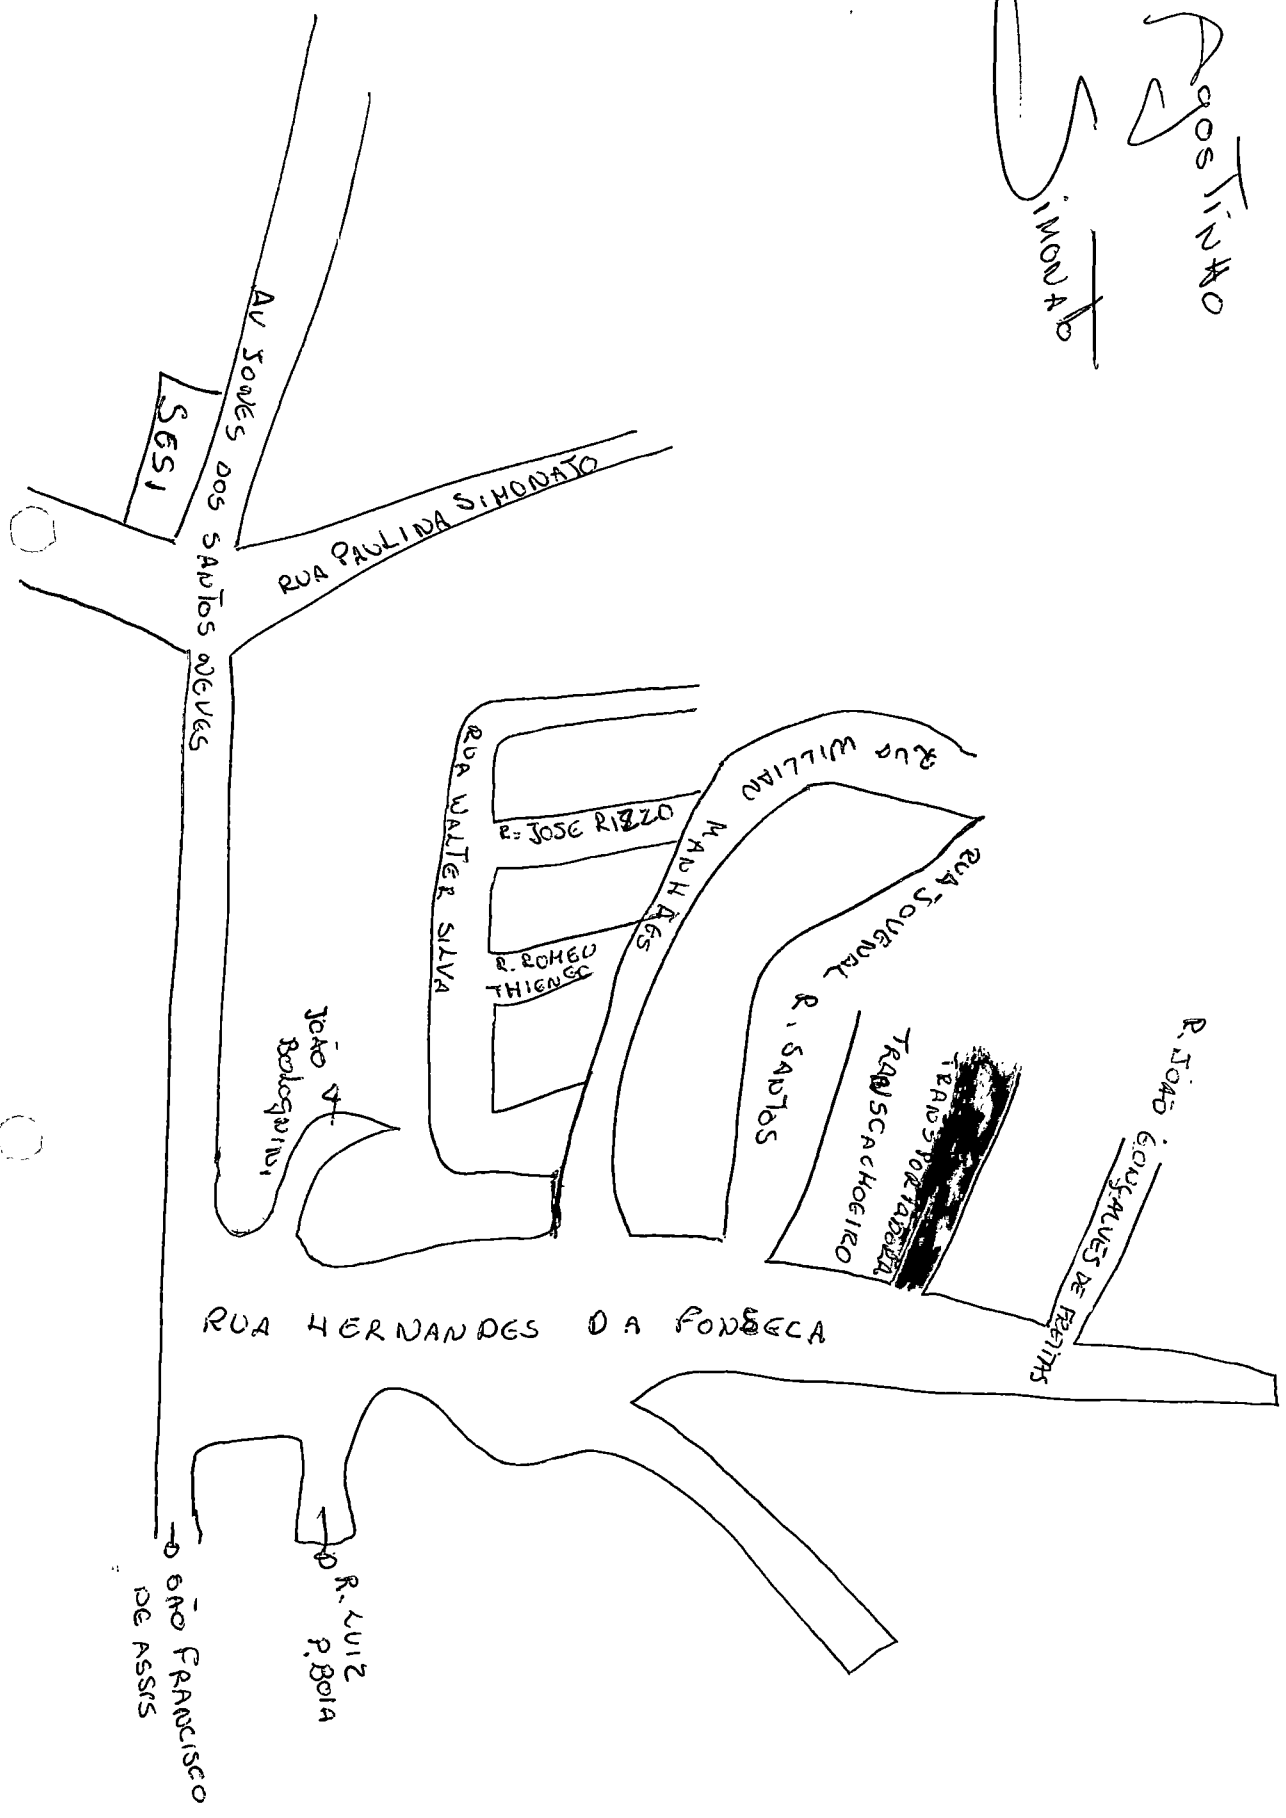 Agostinho
Simonato
AV JONES DOS SANTOS NEVES
SESI
RUA PAULINA SIMONATO
RUA WALTER SILVA
R= JOSE RIZZO
R. ROMEU
THIENGC
RUA WILLIAN MANHÃES
RUA JOUVENAL R. SANTOS
TRANSCACHOEIRO
TRANSPORTADORA
R. JOÃO GONÇALVES DE FREITAS
JOÃO
Bolognini
RUA HERNANDES DA FONSECA
R. LUIZ
P. BOIA
SÃO FRANCISCO
DE ASSIS